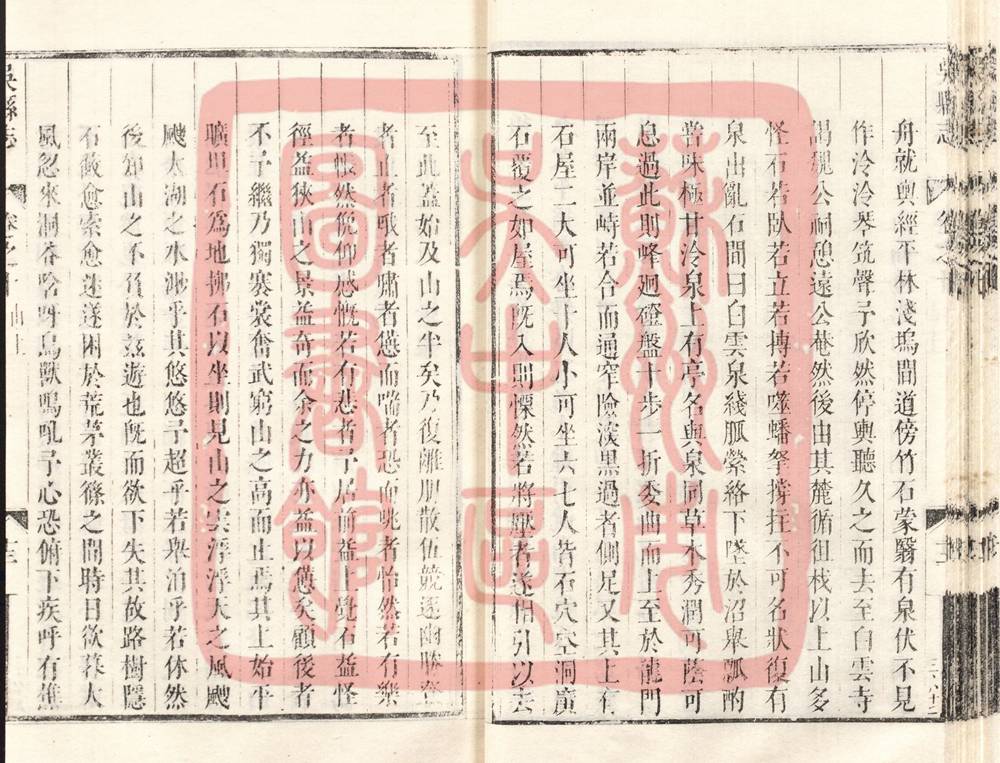 舟就輿經平林淺塢間道傍竹石蒙翳有泉伏不見
作泠泠琴筑聲予欣然停輿聽久之而去至白雲寺
謁魏公祠憩遠公菴然後由其麓循徂棧以上山多
怪石若臥若立若搏若噬蟠拏撐拄不可名狀復有
泉出亂石間曰白雲泉綫脈縈絡下墜於沼舉瓢酌
嘗味極甘冷泉上有亭名與泉同草木秀潤可蔭可
息過此則峰廻磴盤十步一折委曲而上至於龍門
兩岸並峙若合而通窄險深黑過者側足又其上有
石屋二大可坐十人小可坐六七人皆石穴空洞廣
石覆之如屋焉既入則慄然若將壓者遂相引以去
至此蓋始及山之半矣乃復離朋散伍競逐幽勝登
者止者哦者嘯者憊而喘者恐而咷者怡然若有樂
者悵然俛仰感慨若有悲者予居前益上覺石益怪
徑益狹山之景益奇而余之力亦益以憊矣顧後者
不予繼乃獨褰裳奮武窮山之高而止焉其上始平
曠坦石爲地拂石以坐則見山之雲浮浮天之風飂
飂太湖之水渺乎其悠悠予超乎若舉泊乎若休然
後知山之不負於茲遊也既而欲下失其故路樹隱
石蔽愈索愈迷遂困於荒茅叢篠之間時日欲暮大
風忽來洞谷唅呀鳥獸鳴吼予心恐俯下疾呼有樵
吳縣志
卷之
蘇州市文史官圖書館